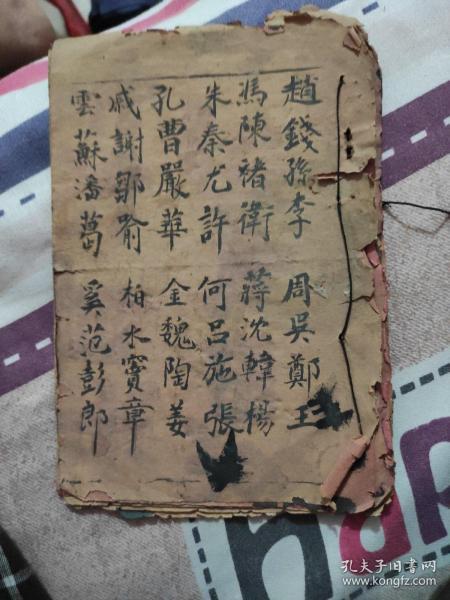 趙錢孫李 周吳鄭王
馮陳褚衛 蔣沈韓楊
朱秦尤許 何呂施張
孔曹嚴華 金魏陶姜
戚謝鄒喻 柏水竇章
雲蘇潘葛 奚范彭郎
孔夫子旧书网
www.kongfz.com